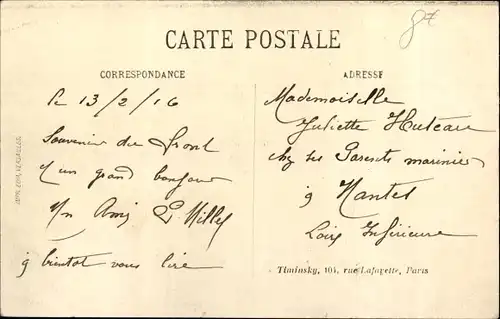 CARTE POSTALE
CORRESPONDANCE
Le 13/2/16
Souvenir du Front
un grand bonjour
Un Ami
a bientot vous lire
ADRESSE
Mademoiselle
Juliette Huteau
chez ses Parents marinier
a Nantes
Loire Inferieure
Timinsky, 101, rue Lafayette, Paris